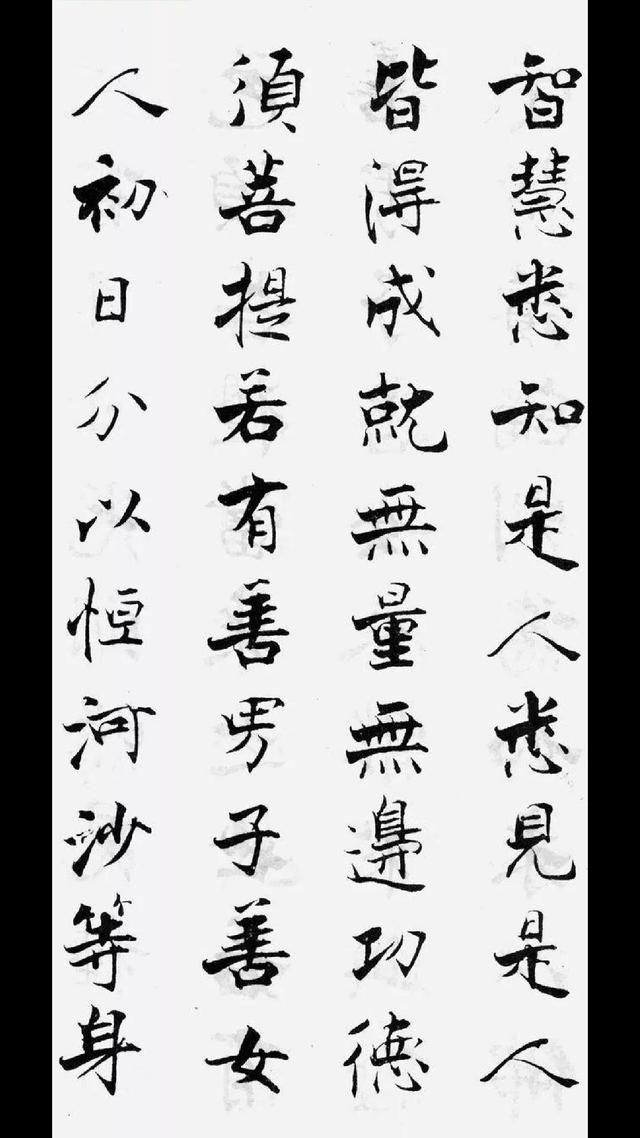 智慧悉知是人悉見是人
皆得成就無量無邊功德
須菩提若有善男子善女
人初日分以恒河沙等身